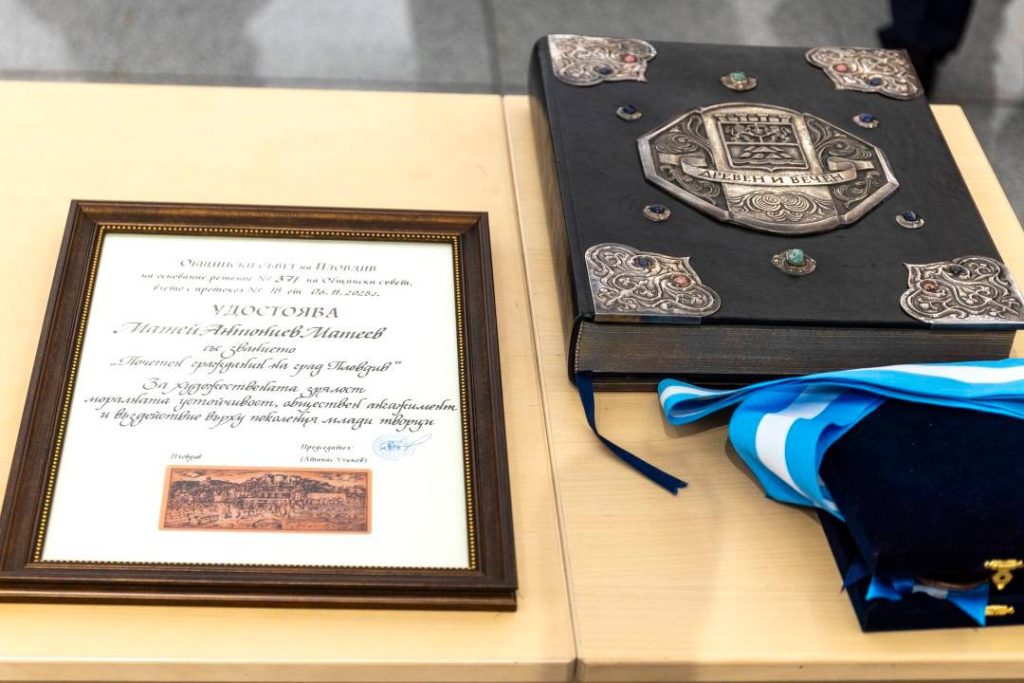 Общински съвет на Пловдив
на основание решение № 371 на Общински съвет,
взето с протокол № 18 от 06.11.2025г.
УДОСТОЯВА
Матей Антониев Матеев
със званието
„Почетен гражданин на град Пловдив“
За художествената зрялост
моралната устойчивост, обществен ангажимент
и въздействие върху поколения млади творци
Пловдив
Председател:
(Атанас Узунов)
ДРЕВЕН И ВЕЧЕН